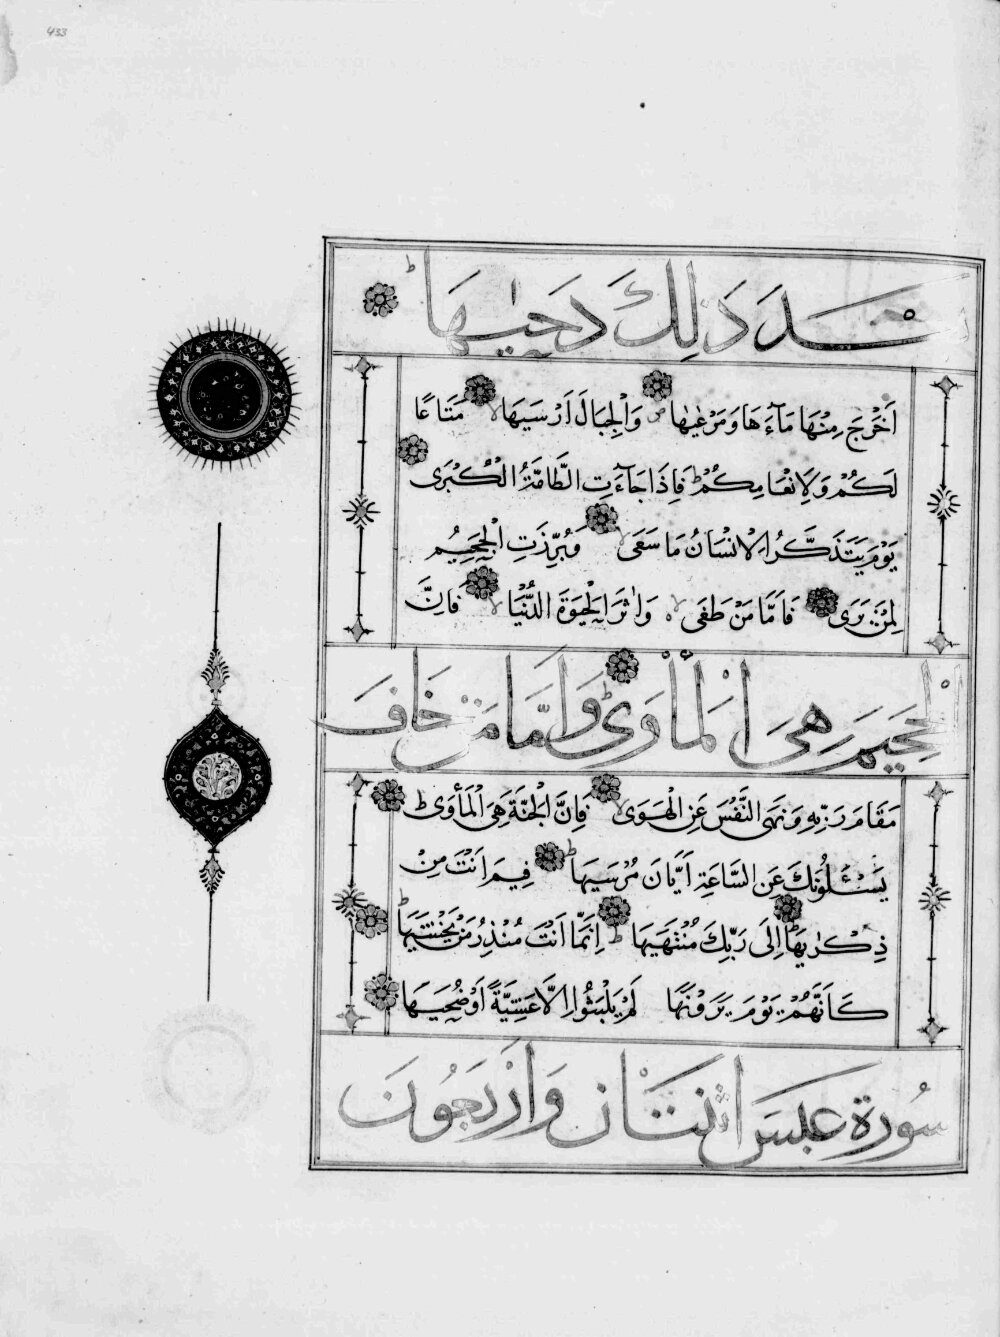 433
بَعْدَ ذَلِكَ دَحٰيهَا
اَخْرَجَ مِنْهَا مَآءَهَا وَمَرْعٰيهَا وَالْجِبَالَ اَرْسٰيهَا مَتَاعًا
لَكُمْ وَلِاَنْعَامِكُمْ فَاِذَا جَآءَتِ الطَّامَّةُ الْكُبْرَى
يَوْمَ يَتَذَكَّرُ الْاِنْسَانُ مَا سَعَى وَبُرِّزَتِ الْجَحِيمُ
لِمَنْ يَرَى فَاَمَّا مَنْ طَغَى وَاٰثَرَ الْحَيٰوةَ الدُّنْيَا فَاِنَّ
الْجَحِيمَ هِيَ الْمَأْوَى وَاَمَّا مَنْ خَافَ
مَقَامَ رَبِّهِ وَنَهَى النَّفْسَ عَنِ الْهَوَى فَاِنَّ الْجَنَّةَ هِيَ الْمَأْوَى
يَسْئَلُونَكَ عَنِ السَّاعَةِ اَيَّانَ مُرْسٰيهَا فِيمَ اَنْتَ مِنْ
ذِكْرٰيهَا اِلَى رَبِّكَ مُنْتَهٰيهَا اِنَّمَا اَنْتَ مُنْذِرُ مَنْ يَخْشٰيهَا
كَاَنَّهُمْ يَوْمَ يَرَوْنَهَا لَمْ يَلْبَثُوا اِلَّا عَشِيَّةً اَوْ ضُحٰيهَا
سُورَةُ عَبَسَ اثْنَتَانِ وَاَرْبَعُونَ